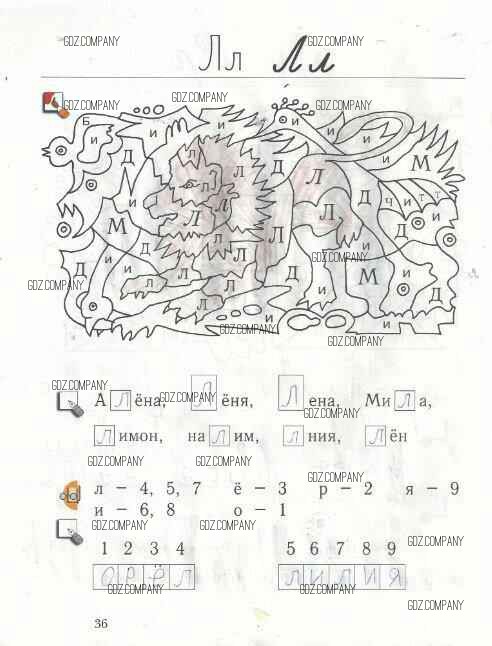 GDZ.COMPANY GDZ.COMPANY
Лл Лл
GDZ.COMPANY GDZ.COMPANY GDZ.COMPANY
Б и и и и
Д и Л Л Д Л и М
и Л Л Л Д ч и т т
М Д Л Л Л Д
Д и Л Л Д и М и Д
GDZ.COMPANY GDZ.COMPANY GDZ.COMPANY
Л Л и и
GDZ.COMPANY GDZ.COMPANY
GDZ.COMPANY GDZ.COMPANY GDZ.COMPANY
АЛёна, Лёня, Лена, МиЛа,
Лимон, наЛим, линия, Лён
GDZ.COMPANY GDZ.COMPANY GDZ.COMPANY
л – 4, 5, 7 ё – 3 р – 2 я – 9
и – 6, 8 о – 1
GDZ.COMPANY GDZ.COMPANY GDZ.COMPANY
1 2 3 4 5 6 7 8 9
ОРЁЛ ЛИЛИЯ
GDZ.COMPANY GDZ.COMPANY
GDZ.COMPANY
36